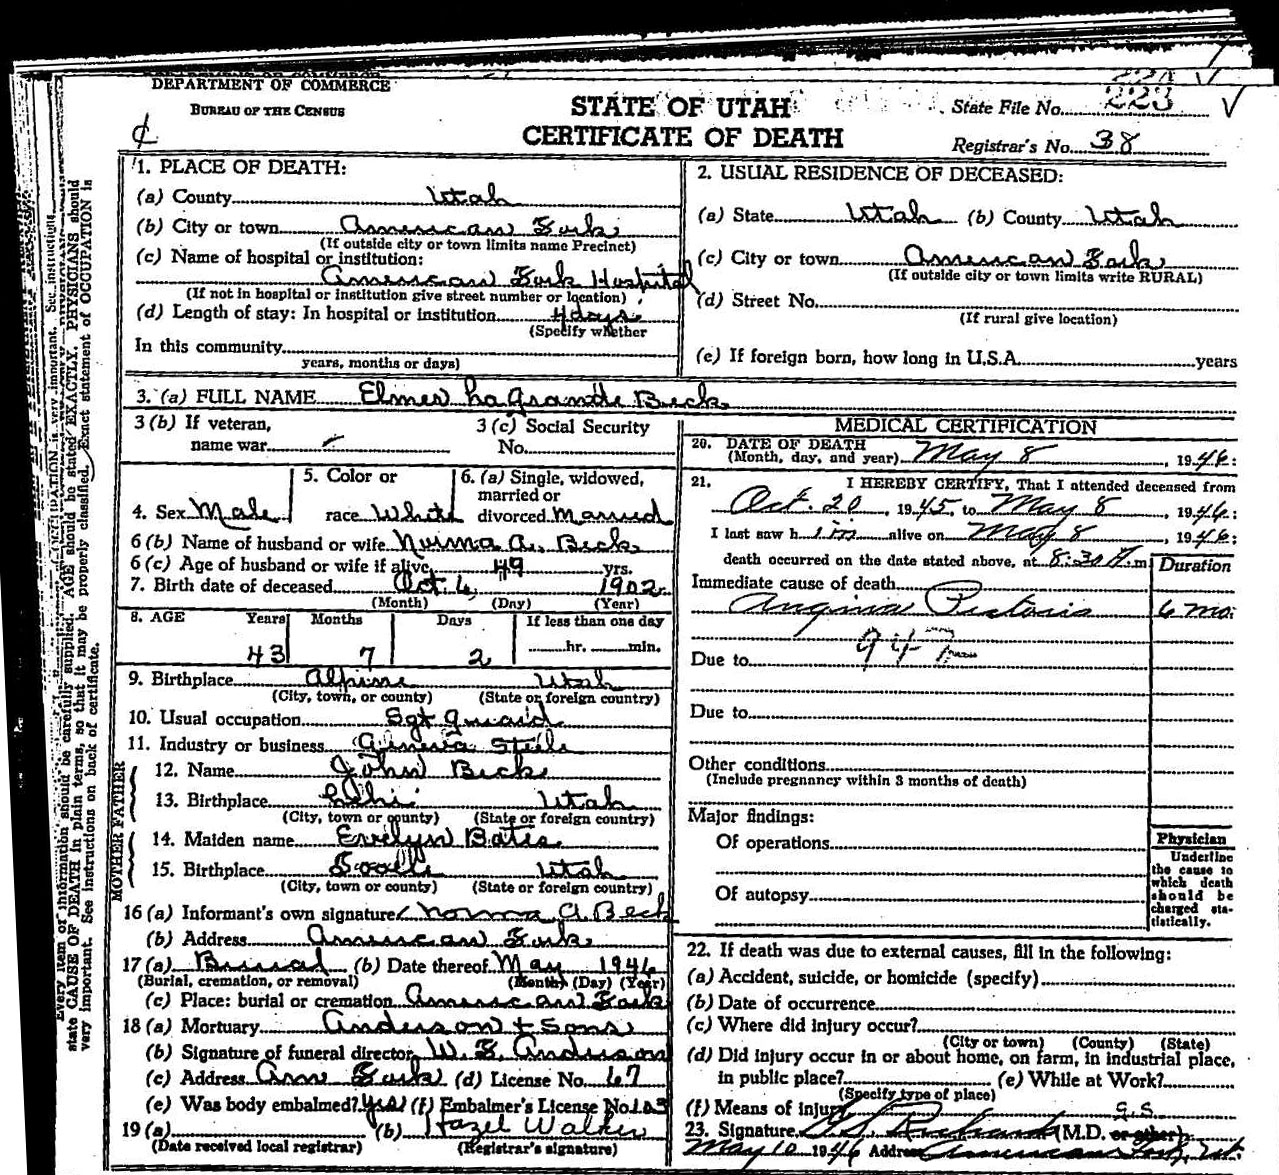 DEPARTMENT OF COMMERCE
BUREAU OF THE CENSUS
STATE OF UTAH
CERTIFICATE OF DEATH
State File No. 223
Registrar's No. 38
1. PLACE OF DEATH:
(a) County Utah
(b) City or town American Fork
(If outside city or town limits name Precinct)
(c) Name of hospital or institution:
American Fork Hospital
(If not in hospital or institution give street number or location)
(d) Length of stay: In hospital or institution 4 days
(Specify whether
In this community
years, months or days)
2. USUAL RESIDENCE OF DECEASED:
(a) State Utah (b) County Utah
(c) City or town American Fork
(If outside city or town limits write RURAL)
(d) Street No.
(If rural give location)
(e) If foreign born, how long in U.S.A. years
3. (a) FULL NAME Elmer LaGrande Beck
3 (b) If veteran,
name war
3 (c) Social Security
No.
4. Sex Male
5. Color or
race White
6. (a) Single, widowed,
married or
divorced Married
6 (b) Name of husband or wife Norma A. Beck
6 (c) Age of husband or wife if alive 49 yrs.
7. Birth date of deceased Oct. 6, 1902
(Month) (Day) (Year)
8. AGE Years Months Days If less than one day
43 7 2 hr. min.
9. Birthplace Alpine Utah
(City, town, or county) (State or foreign country)
10. Usual occupation Sgt Guard
11. Industry or business Geneva Steele
FATHER
12. Name John Beck
13. Birthplace Lehi Utah
(City, town or county) (State or foreign country)
MOTHER
14. Maiden name Evelyn Bates
15. Birthplace Tooele Utah
(City, town or county) (State or foreign country)
16 (a) Informant's own signature Norma A. Beck
(b) Address American Fork
17 (a) Burial (b) Date thereof May 1946
(Burial, cremation, or removal) (Month) (Day) (Year)
(c) Place: burial or cremation American Fork
18 (a) Mortuary Anderson & Sons
(b) Signature of funeral director W. E. Anderson
(c) Address Am Fork (d) License No. 67
(e) Was body embalmed? Yes (f) Embalmer's License No. 103
19 (a) (b) Hazel Walker
(Date received local registrar) (Registrar's signature)
MEDICAL CERTIFICATION
20. DATE OF DEATH
(Month, day, and year) May 8, 1946:
21. I HEREBY CERTIFY, That I attended deceased from
Oct. 20, 1945, to May 8, 1946:
I last saw h im alive on May 8, 1946:
death occurred on the date stated above, at 8:30 A.m.
Duration
Immediate cause of death
Angina Pectoris 6 mo.
947
Due to
Due to
Other conditions
(Include pregnancy within 3 months of death)
Major findings:
Of operations
Of autopsy
Physician
Underline
the cause to
which death
should be
charged sta-
tistically.
22. If death was due to external causes, fill in the following:
(a) Accident, suicide, or homicide (specify)
(b) Date of occurrence
(c) Where did injury occur?
(City or town) (County) (State)
(d) Did injury occur in or about home, on farm, in industrial place,
in public place? (e) While at Work?
(Specify type of place)
(f) Means of injury G.S.
23. Signature Richards (M.D. or other)
May 10 1946 Address American Fork, Ut.
Every item of information should be carefully supplied. AGE should be stated EXACTLY. PHYSICIANS should
state CAUSE OF DEATH in plain terms, so that it may be properly classified. Exact statement of OCCUPATION is
very important. See instructions on back of certificate.